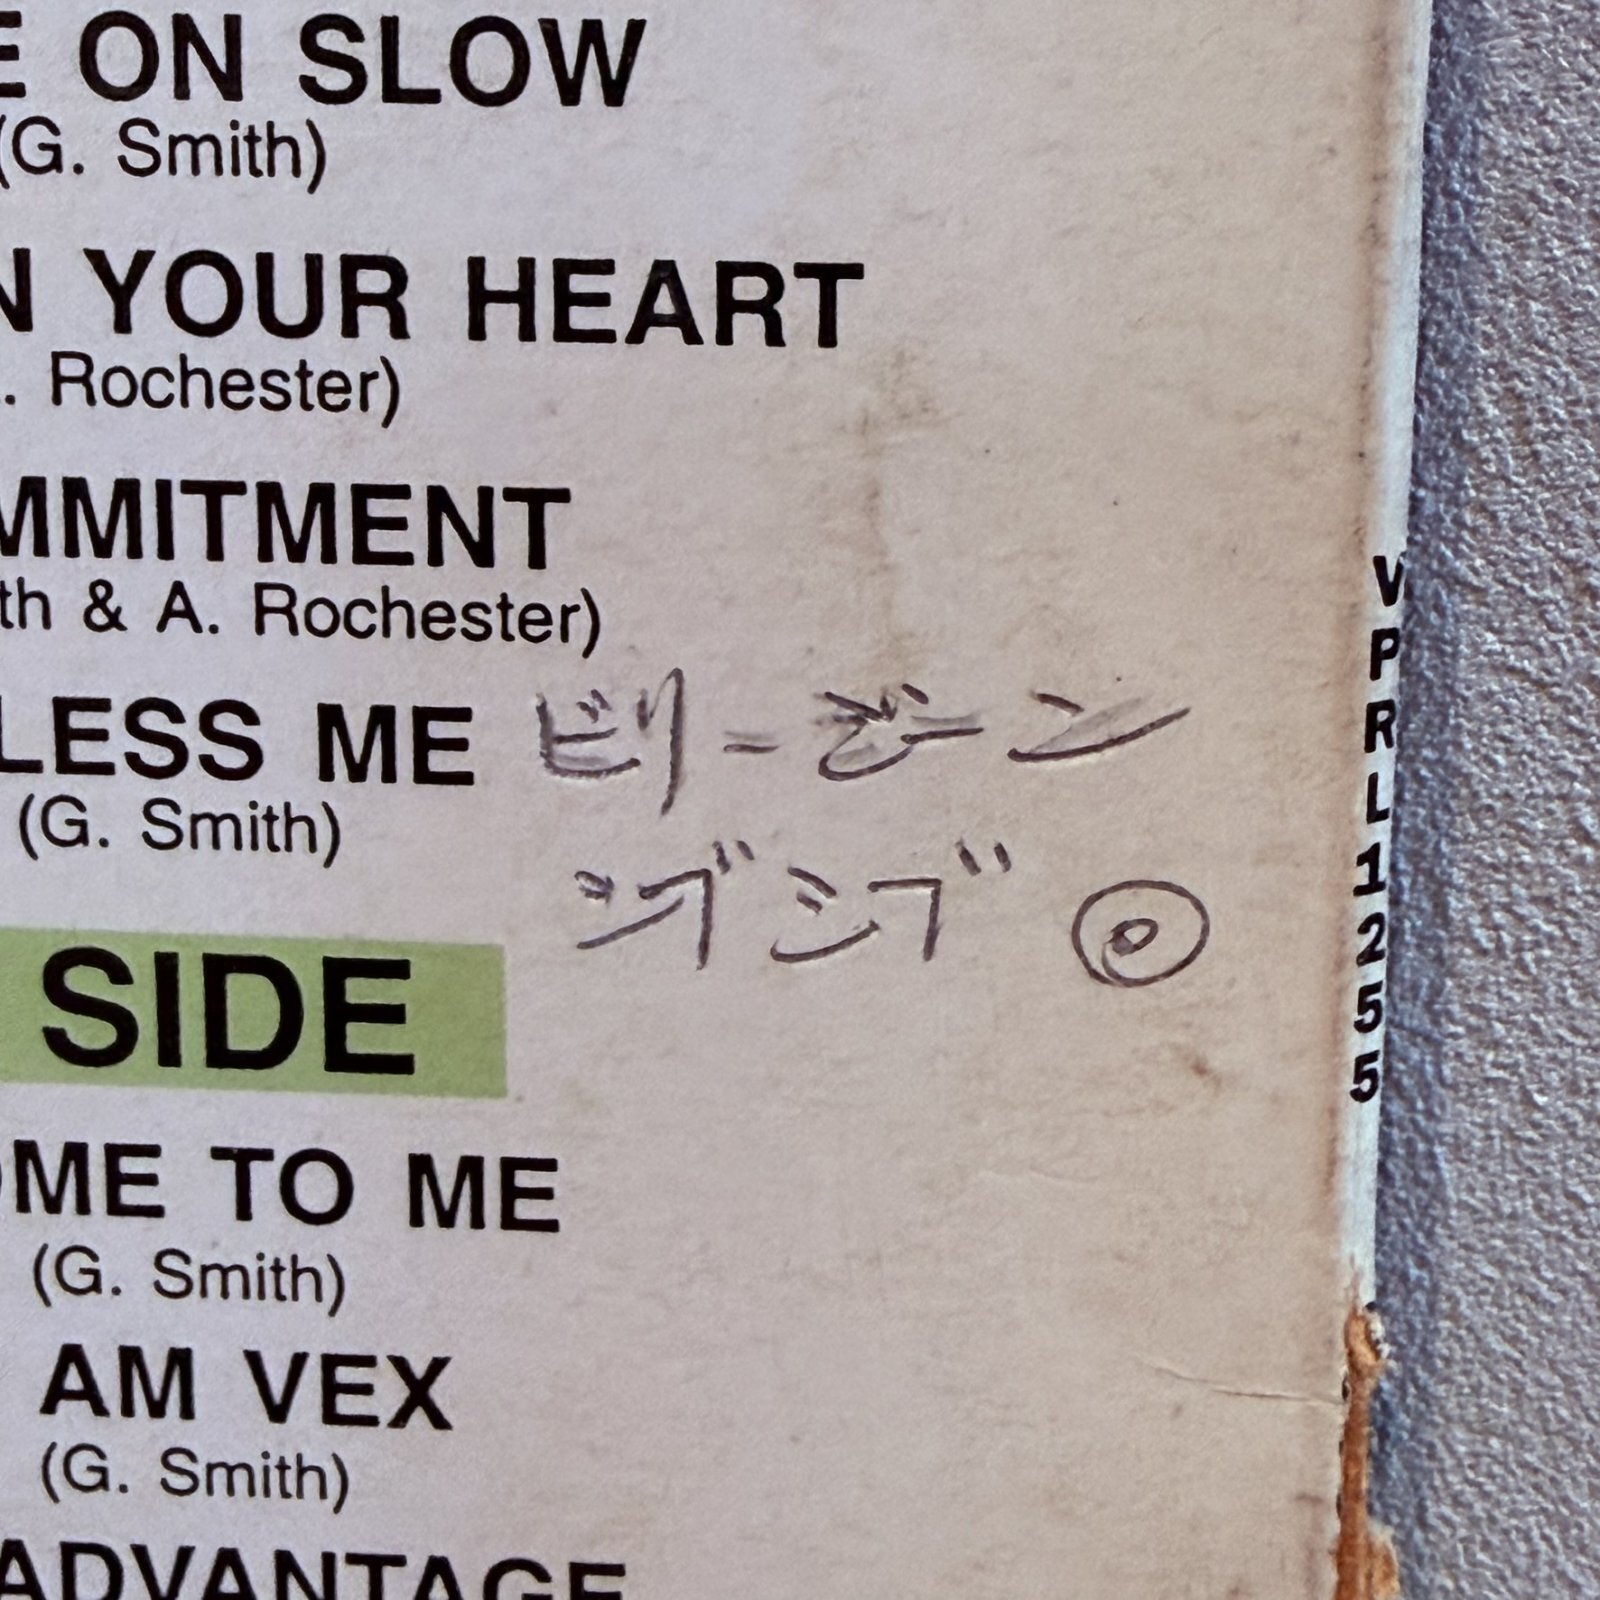 E ON SLOW
(G. Smith)
N YOUR HEART
. Rochester)
MMITMENT
th & A. Rochester)
LESS ME ビリージーン
(G. Smith)
シブシブ ◎
SIDE
OME TO ME
(G. Smith)
AM VEX
(G. Smith)
ADVANTAGE
VPRL1255